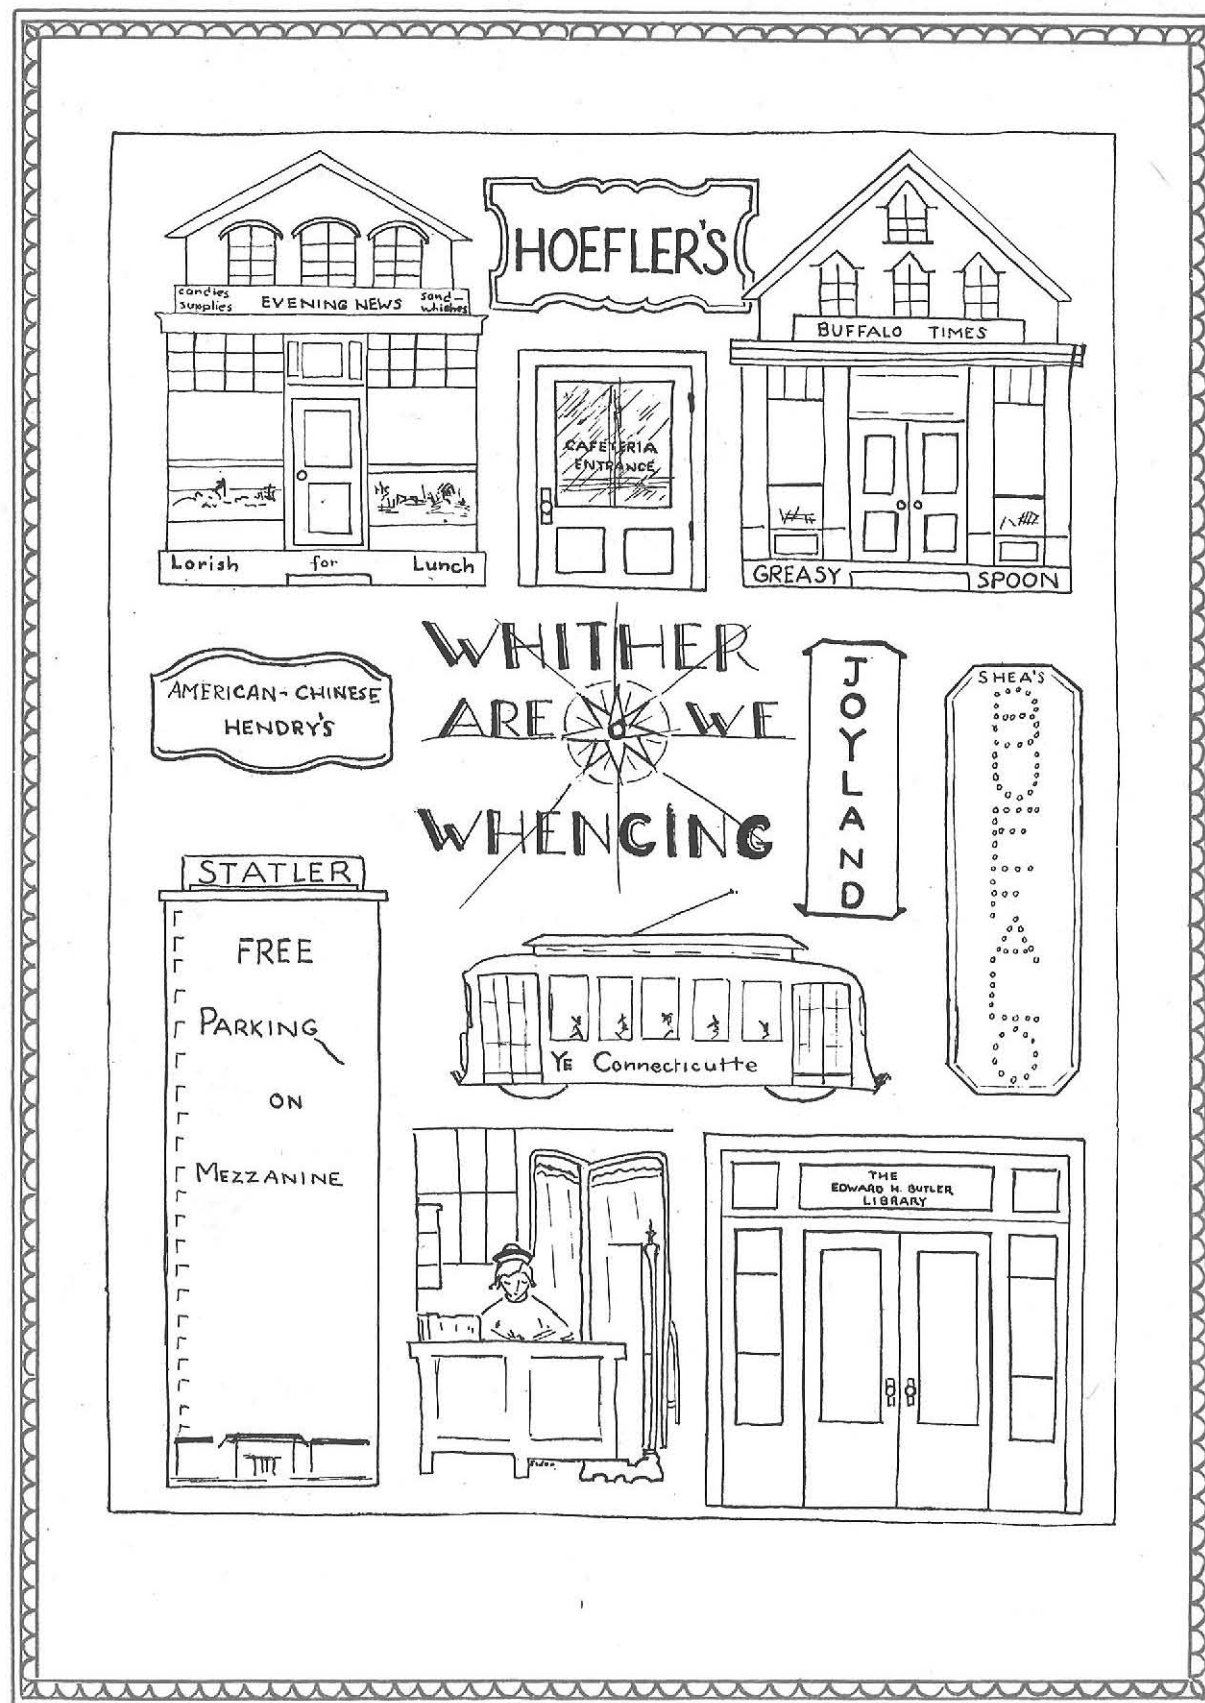 candies
supplies
EVENING NEWS
sand-
whiches
Lorish for Lunch
HOEFLER'S
CAFETERIA
ENTRANCE
BUFFALO TIMES
GREASY SPOON
AMERICAN-CHINESE
HENDRY'S
WHITHER
ARE WE
WHENCING
JOYLAND
SHEA'S
BUFFALO
STATLER
FREE
PARKING
ON
MEZZANINE
YE Connecticutte
THE
EDWARD H. BUTLER
LIBRARY